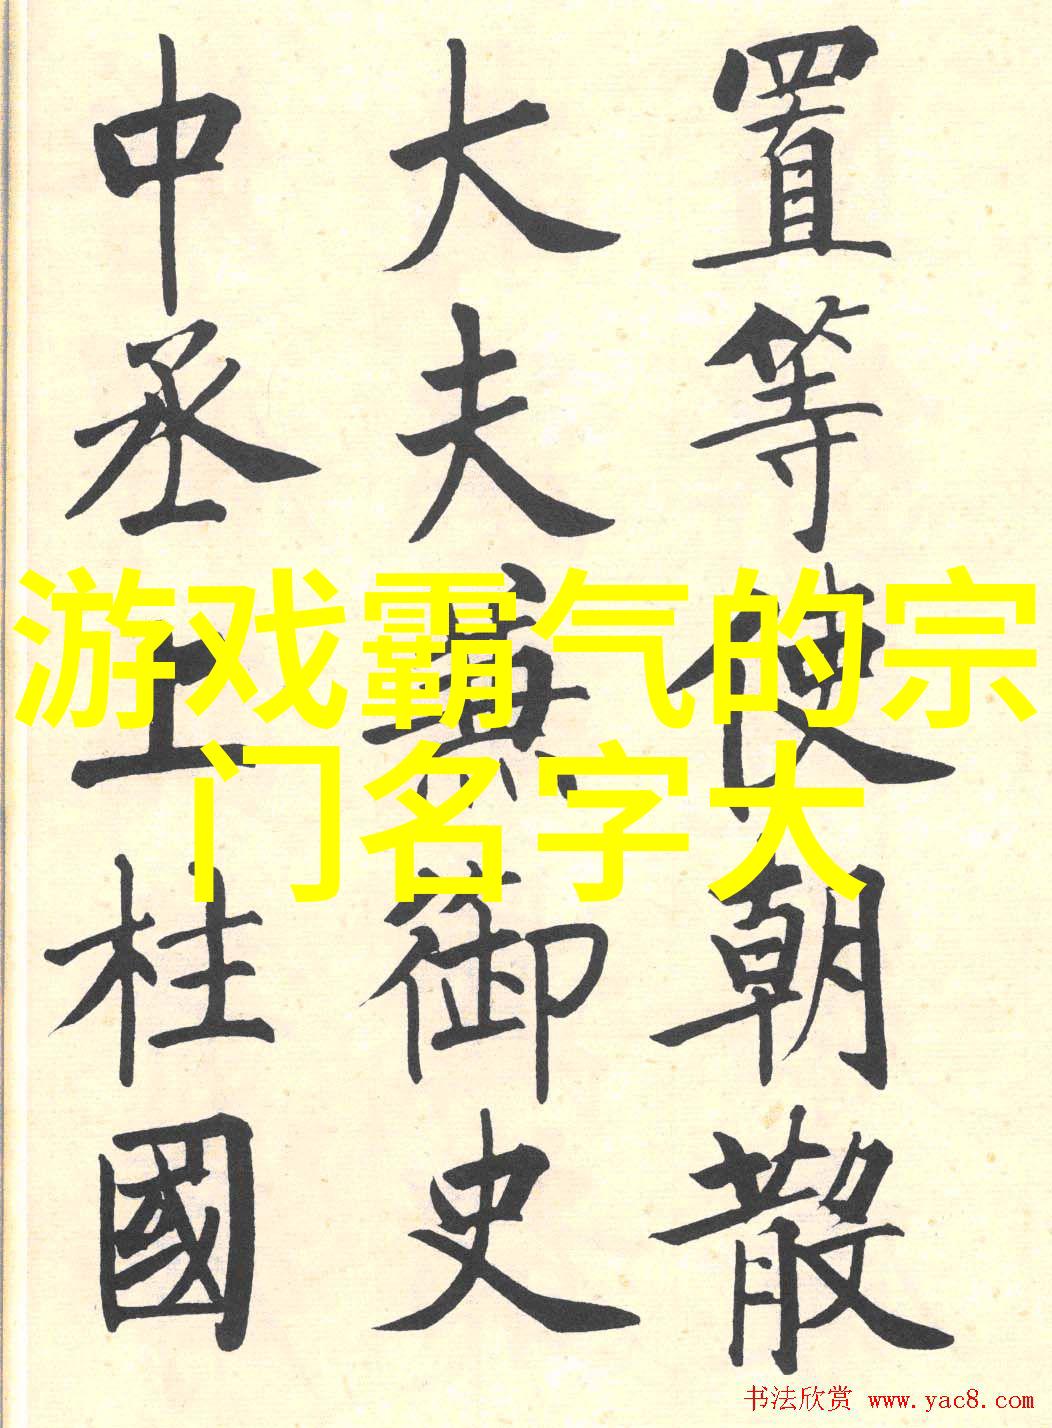 置等使朝散
大夫兼御史
中丞上柱國
游戏霸气的宗
门名字大
书法欣赏 www.yac8.com